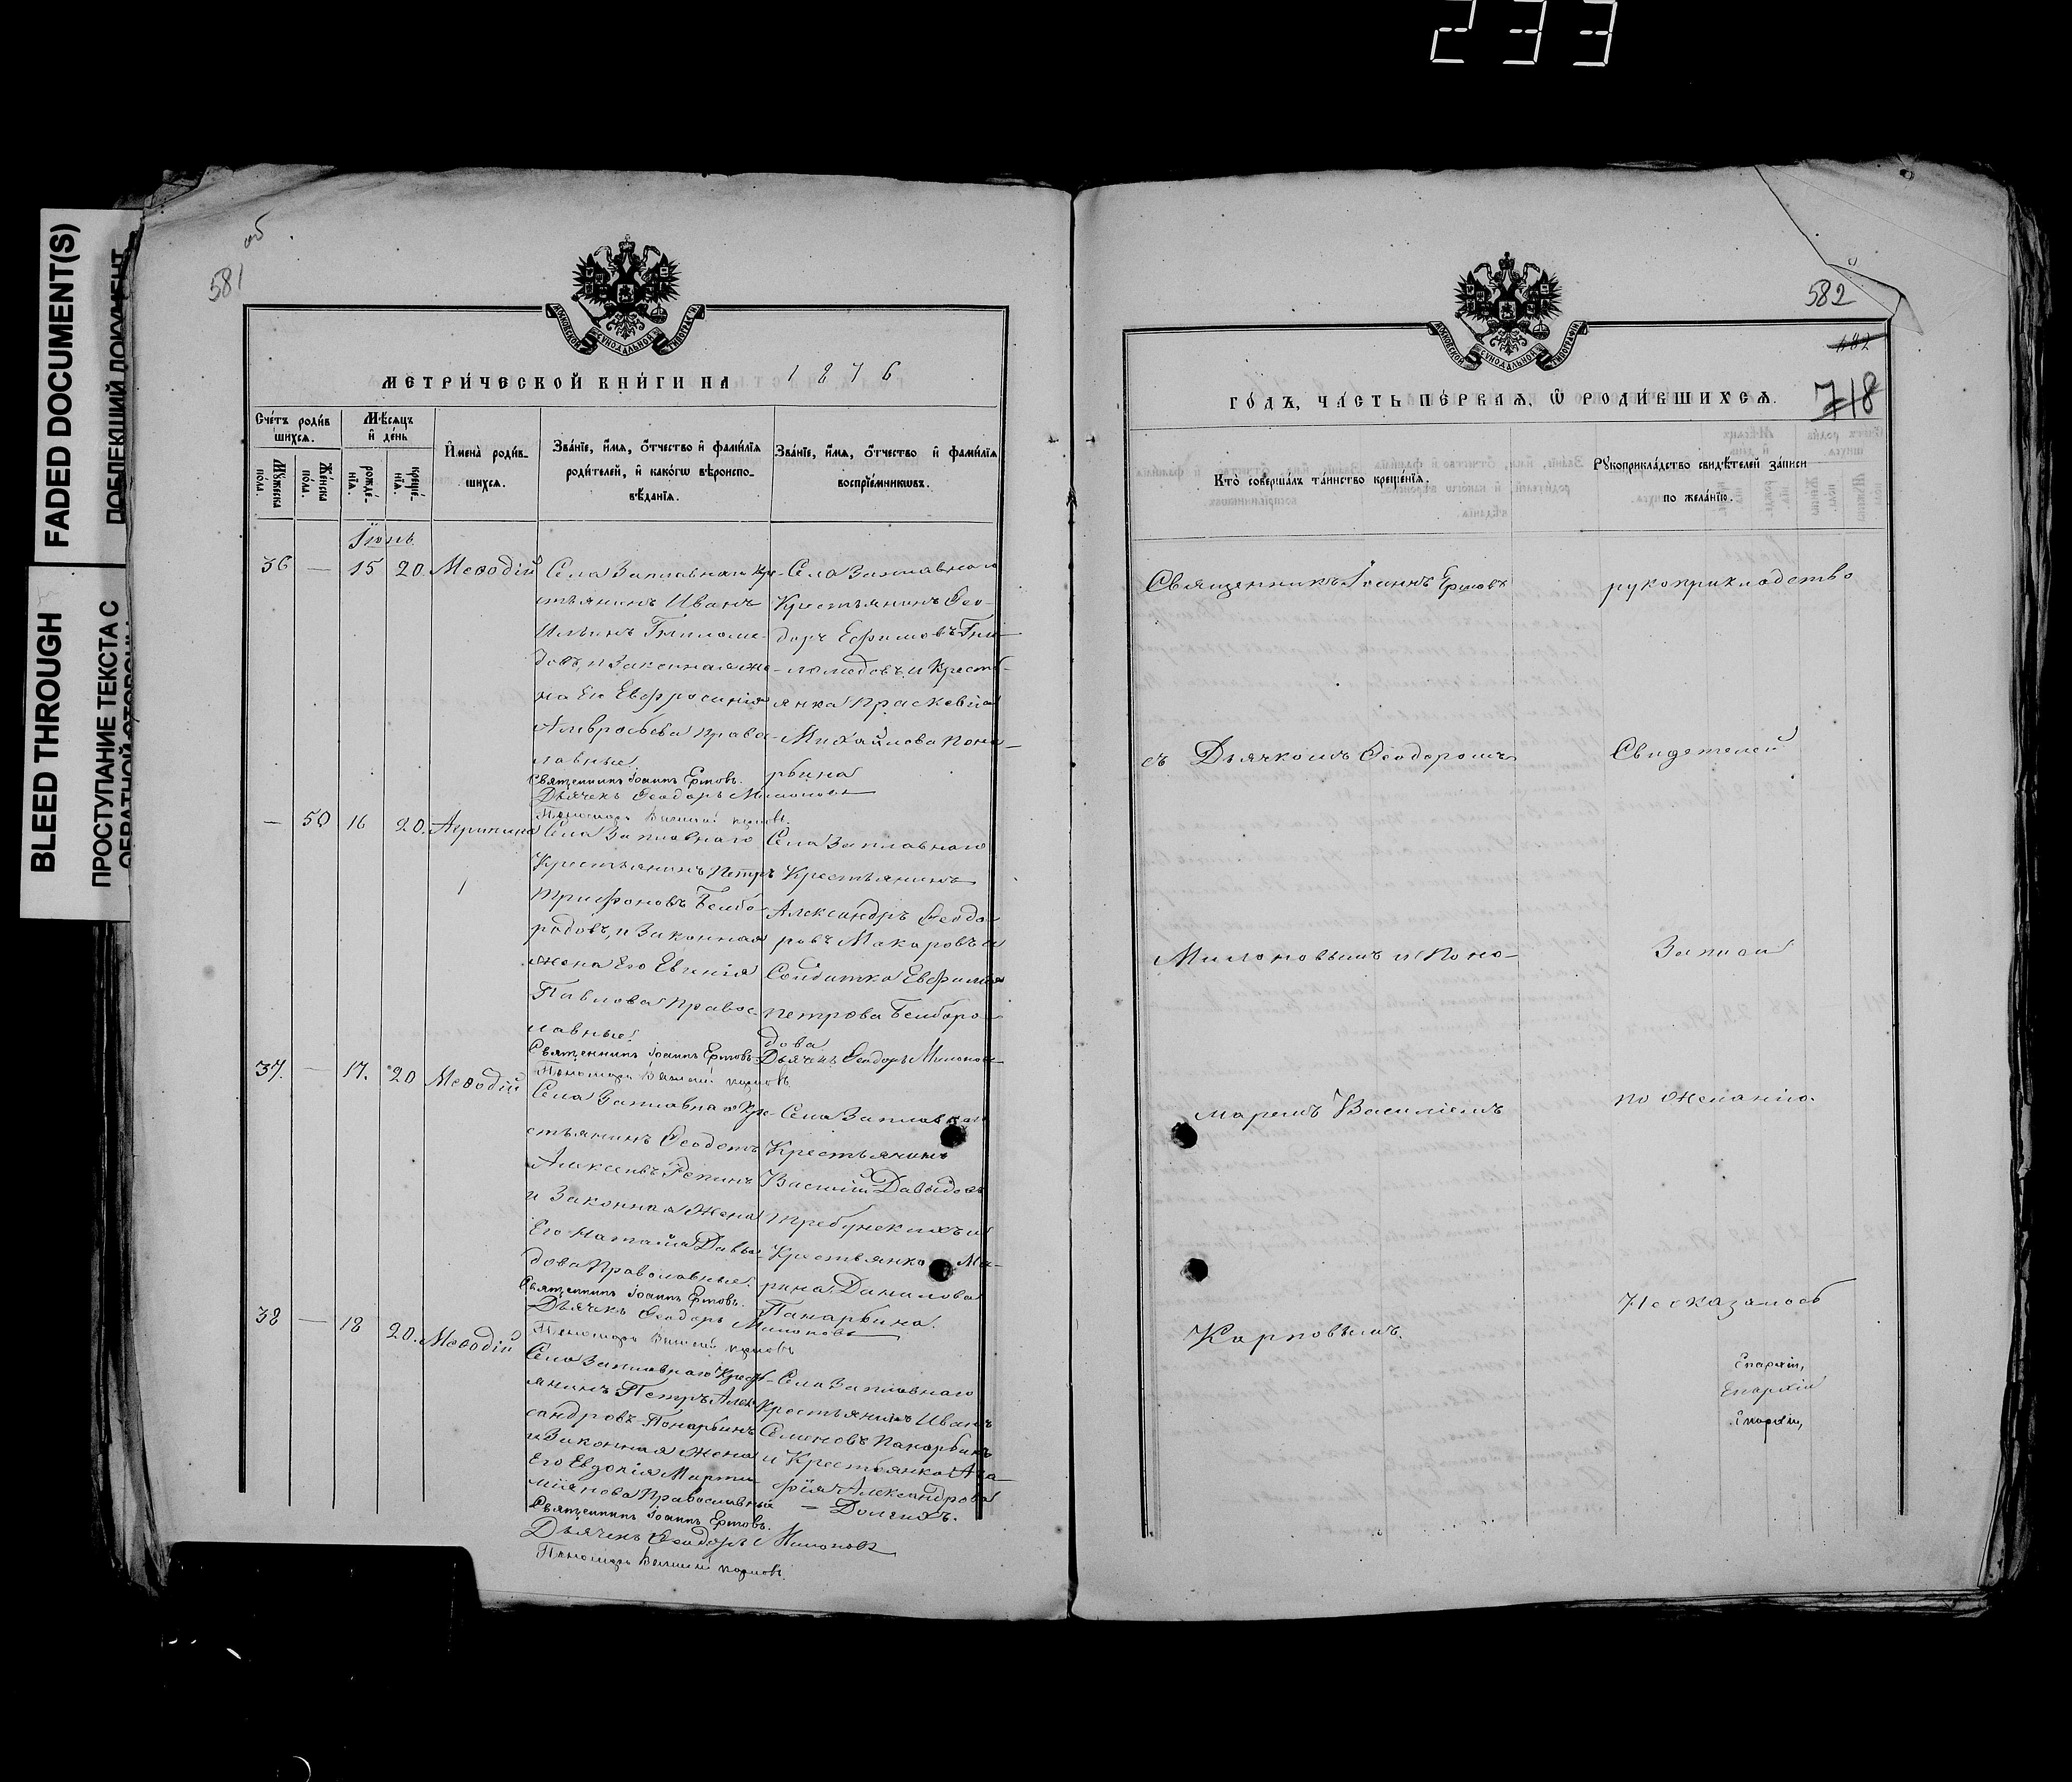 233
FADED DOCUMENT(S)
BLEED THROUGH
ПРОСТУПАНИЕ ТЕКСТА С
об
581
МОСКОВСКОЙ СѴНОДАЛЬНОЙ ТИПОГРАФІИ
МЕТРИ́ЧЕСКОЙ КНИ́ГИ НА 1876
Сче́тъ роди́в
шихся.
Мꙋ́жеска
пола.
Же́нска
по́ла.
Мѣ́сяцъ
и҆ де́нь
рожде́-
нїя.
креще́-
нїя.
И҆мена̀ роди́в-
шихся.
Зва́нїе, и҆́мя, ѻ҆́тчество и҆ фами́лїя
роди́телей, и҆ како́гѡ вѣроиспо-
вѣ́данїя.
Зва́нїе, и҆́мя, ѻ҆́тчество и҆ фами́лїя
воспрїе́мникѡвъ.
Іюнь
36 — 15 20. Меѳодій
Села Заплавнаго Кре-
стьянинъ Иванъ
Ильинъ
и Законная же-
на Его Евфросинія
Амвросьева Право-
лавные
Священникъ Іоаннъ Ершовъ.
Дьячекъ Ѳеодоръ Милоновъ
Пономарь Василій Карповъ.
Села Заплавнаго
Крестьянинъ Ѳео-
доръ Ефимовъ
и Кресть-
янка Праскевія
Михайлова Пона-
рьина
— 50 16 20. Агрипина
Села Заплавнаго
Крестьянинъ Петръ
Трифоновъ Белбо-
родовъ, и Законная
жена Его Евгенія
Павлова Правос-
лавные
Священникъ Іоаннъ Ершовъ.
Дьячекъ Ѳеодоръ Милоновъ
Пономарь Василій Карповъ
Села Заплавнаго
Крестьянинъ
Александръ Ѳеодо-
ровъ Макаровъ и
Солдатка Евфимія
Петрова Белборо-
дова
37. — 17. 20 Меѳодій
Села Заплавнаго Кре-
стьянинъ Ѳеодотъ
Алексеевъ Репинъ
и Законная Жена
Его Наталія Давы-
дова Православные.
Священникъ Іоаннъ Ершовъ.
Дьячекъ Ѳеодоръ Милоновъ
Пономарь Василій Карповъ
Села Заплавнаго
Крестьянинъ
Василій Давыдовъ
Требунскихъ и
Крестьянка Ма-
рина Данилова
Панарьина.
38 — 18 20. Меѳодій
Села Заплавнаго Кресть-
янинъ Петръ Алек-
сандровъ Понарьинъ
и Законная Жена
Его Евдокія Марти-
міянова Православные
Священникъ Іоаннъ Ершовъ.
Дьячекъ Ѳеодоръ Милоновъ
Пономарь Василій Карповъ.
Села Заплавнаго
Крестьянинъ Иванъ
Семеновъ Панарьинъ
и Крестьянка Ага-
фія Александрова
Долгихъ.
582
582
718
МОСКОВСКОЙ СѴНОДАЛЬНОЙ ТИПОГРАФІИ
ГО́ДЪ, ЧА́СТЬ ПЕ́РВАЯ, Ѡ҆ РОДИ́ВШИХСЯ.
Кто̀ соверша́лъ та́инство креще́нїя.
Рꙋкоприкла́дство свидѣ́телей за́писи
по жела́нїю.
Священникъ Іоаннъ Ершовъ
съ Дьячкомъ Ѳеодоромъ
Милоновымъ и Поно-
маремъ Василіемъ
Карповымъ.
рукоприкладство
Свидетелей
Записи
по Желанію.
Неоказалось
Епархіи,
Епархіи
Епархіи,